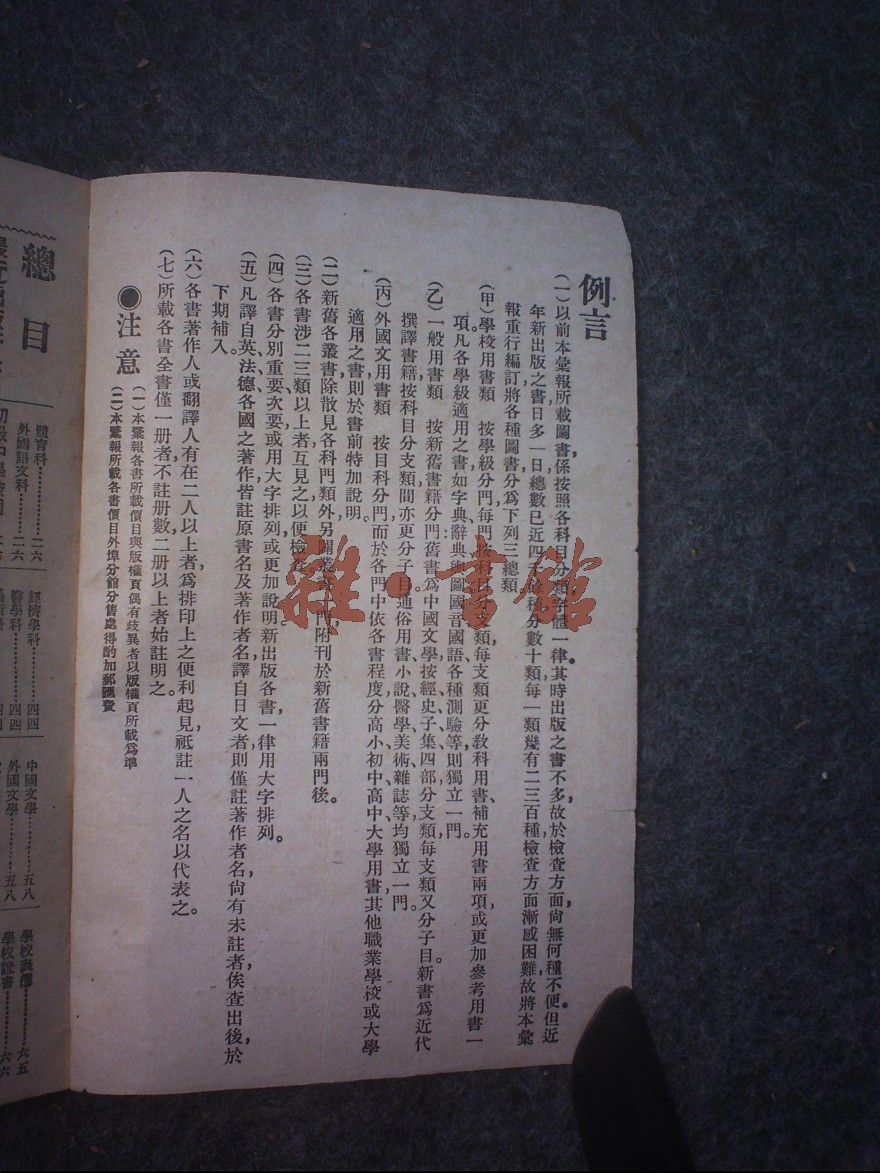 例言
(一)以前本彙報所載圖書,係按照各科目分類,字體一律。其時出版之書不多,故於檢查方面,尙無何種不便。但近
年新出版之書日多一日,總數已近四千餘種,分數十類,每一類幾有二三百種,檢查方面漸感困難,故將本彙
報重行編訂,將各種圖書分爲下列三總類。
(甲)學校用書類 按學級分門,每門按科目分支類,每支類更分敎科用書、補充用書兩項,或更加參考用書一
項。凡各學級適用之書,如字典、辭典、輿圖、國音國語、各種測驗等則獨立一門。
(乙)一般用書類 按新舊書籍分門,舊書爲中國文學,按經史子集四部分支類,每支類又分子目。新書爲近代
撰譯書籍,按科目分支類,間亦更分子目。通俗用書、小說、醫學、美術、雜誌等均獨立一門。
(丙)外國文用書類 按目科分門,而於各門中依各書程度,分高小、初中、高中、大學用書,其他職業學校或大學
適用之書則於書前特加說明。
(二)新舊各叢書除散見各科門類外,另關叢書一門,附刊於新舊書籍兩門後。
(三)各書涉二三類以上者互見之,以便檢查。
(四)各書分別重要、次要,或用大字排列,或更加說明,新出版各書一律用大字排列。
(五)凡譯自英、法、德、各國之著作,皆註原書名及著作者名,譯自日文者則僅註著作者名,尙有未註者俟查出後,於
下期補入。
(六)各書著作人或翻譯人有在二人以上者,爲排印上之便利起見,祗註一人之名以代表之。
(七)所載各書全書僅一册者不註册數,二册以上者始註明之。
●注意
(一)本彙報各書所載價目與版權頁偶有歧異者以版權頁所載爲準
(二)本彙報所載各書價目外埠分館分售處得酌加郵匯費
總目
體育科……二六
外國語文科……二六
經濟學科……四四
醫學科……四四
中國文學……五八
外國文學……五八
學校表簿……六五
學校證書……六六
雜·書館